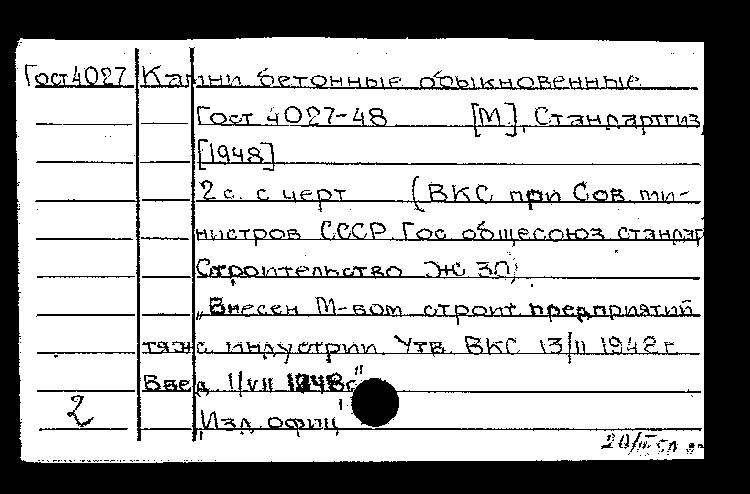 Гост 4027 Камни бетонные обыкновенные
Гост 4027-48 [М], Стандартгиз,
[1948]
2 с. с черт (ВКС при Сов ми-
нистров СССР. Гос общесоюз стандар
Строительство Ж 30)
„Внесен М-вом строит предприятий
тяж. индустрии. Утв. ВКС 13/II 1948 г
Введ. 1/VII 1948 г"
2 „Изд. офиц"
20/